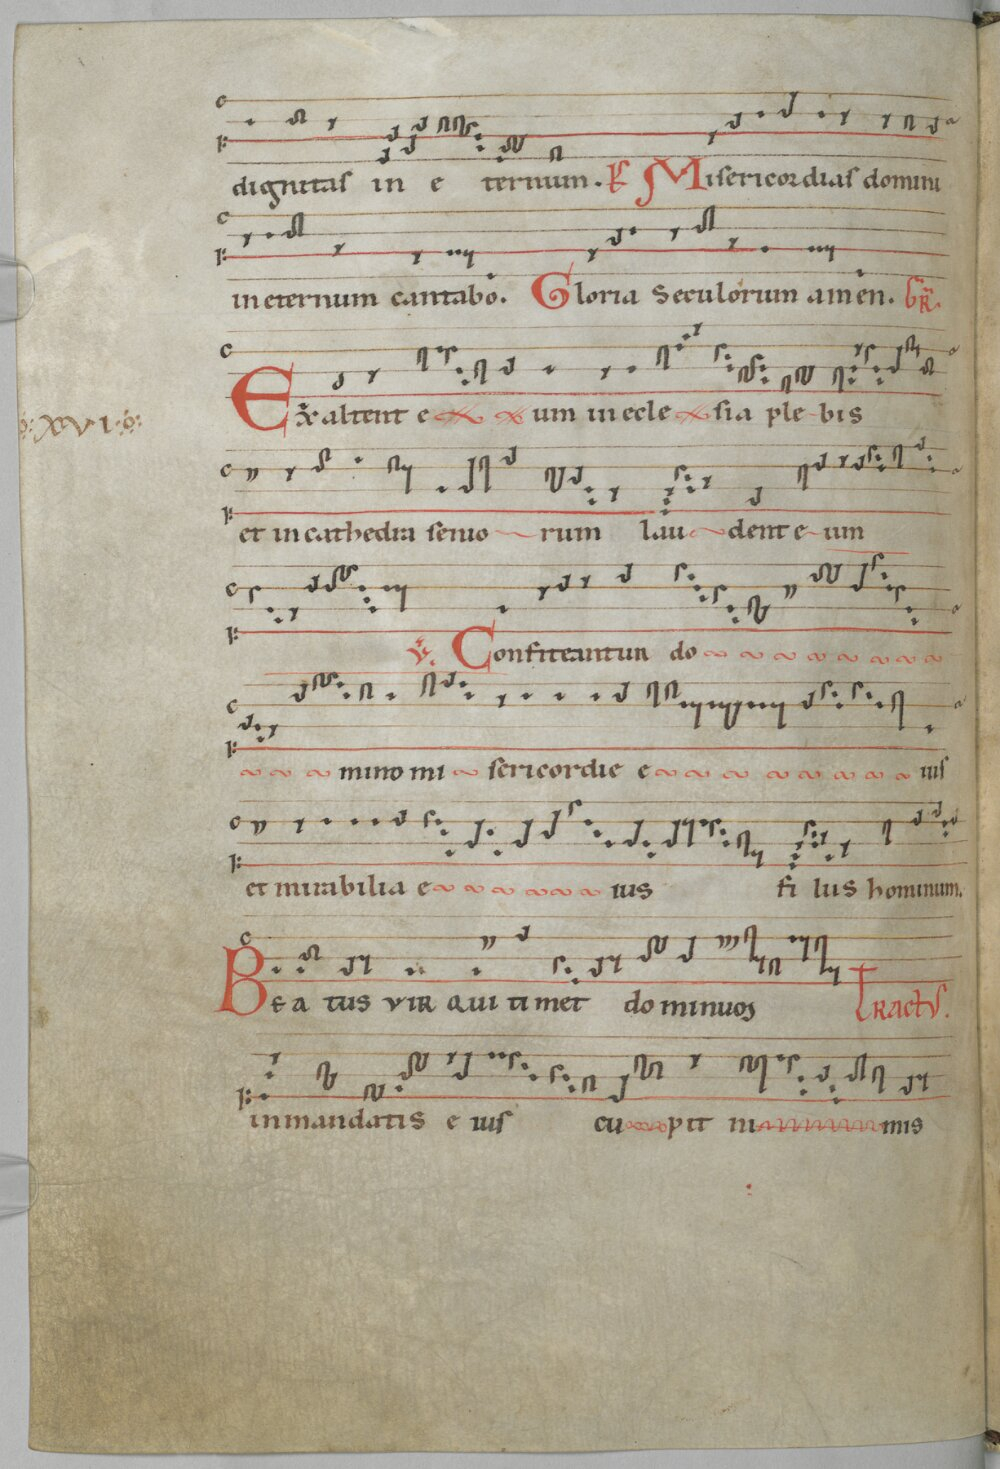 dignitas in e ternum. Ps Misericordias domini
in eternum cantabo. Gloria Seculorum amen. GR.
Exaltent e um in ecle sia ple bis
.XVI.
et in cathedra senio rum lau dent e um
V. Confiteantur do
mino mi sericordie e ius
et mirabilia e ius fi lius hominum.
Beatus vir qui timet do minum Tractus.
in mandatis e ius cu pit ni mis